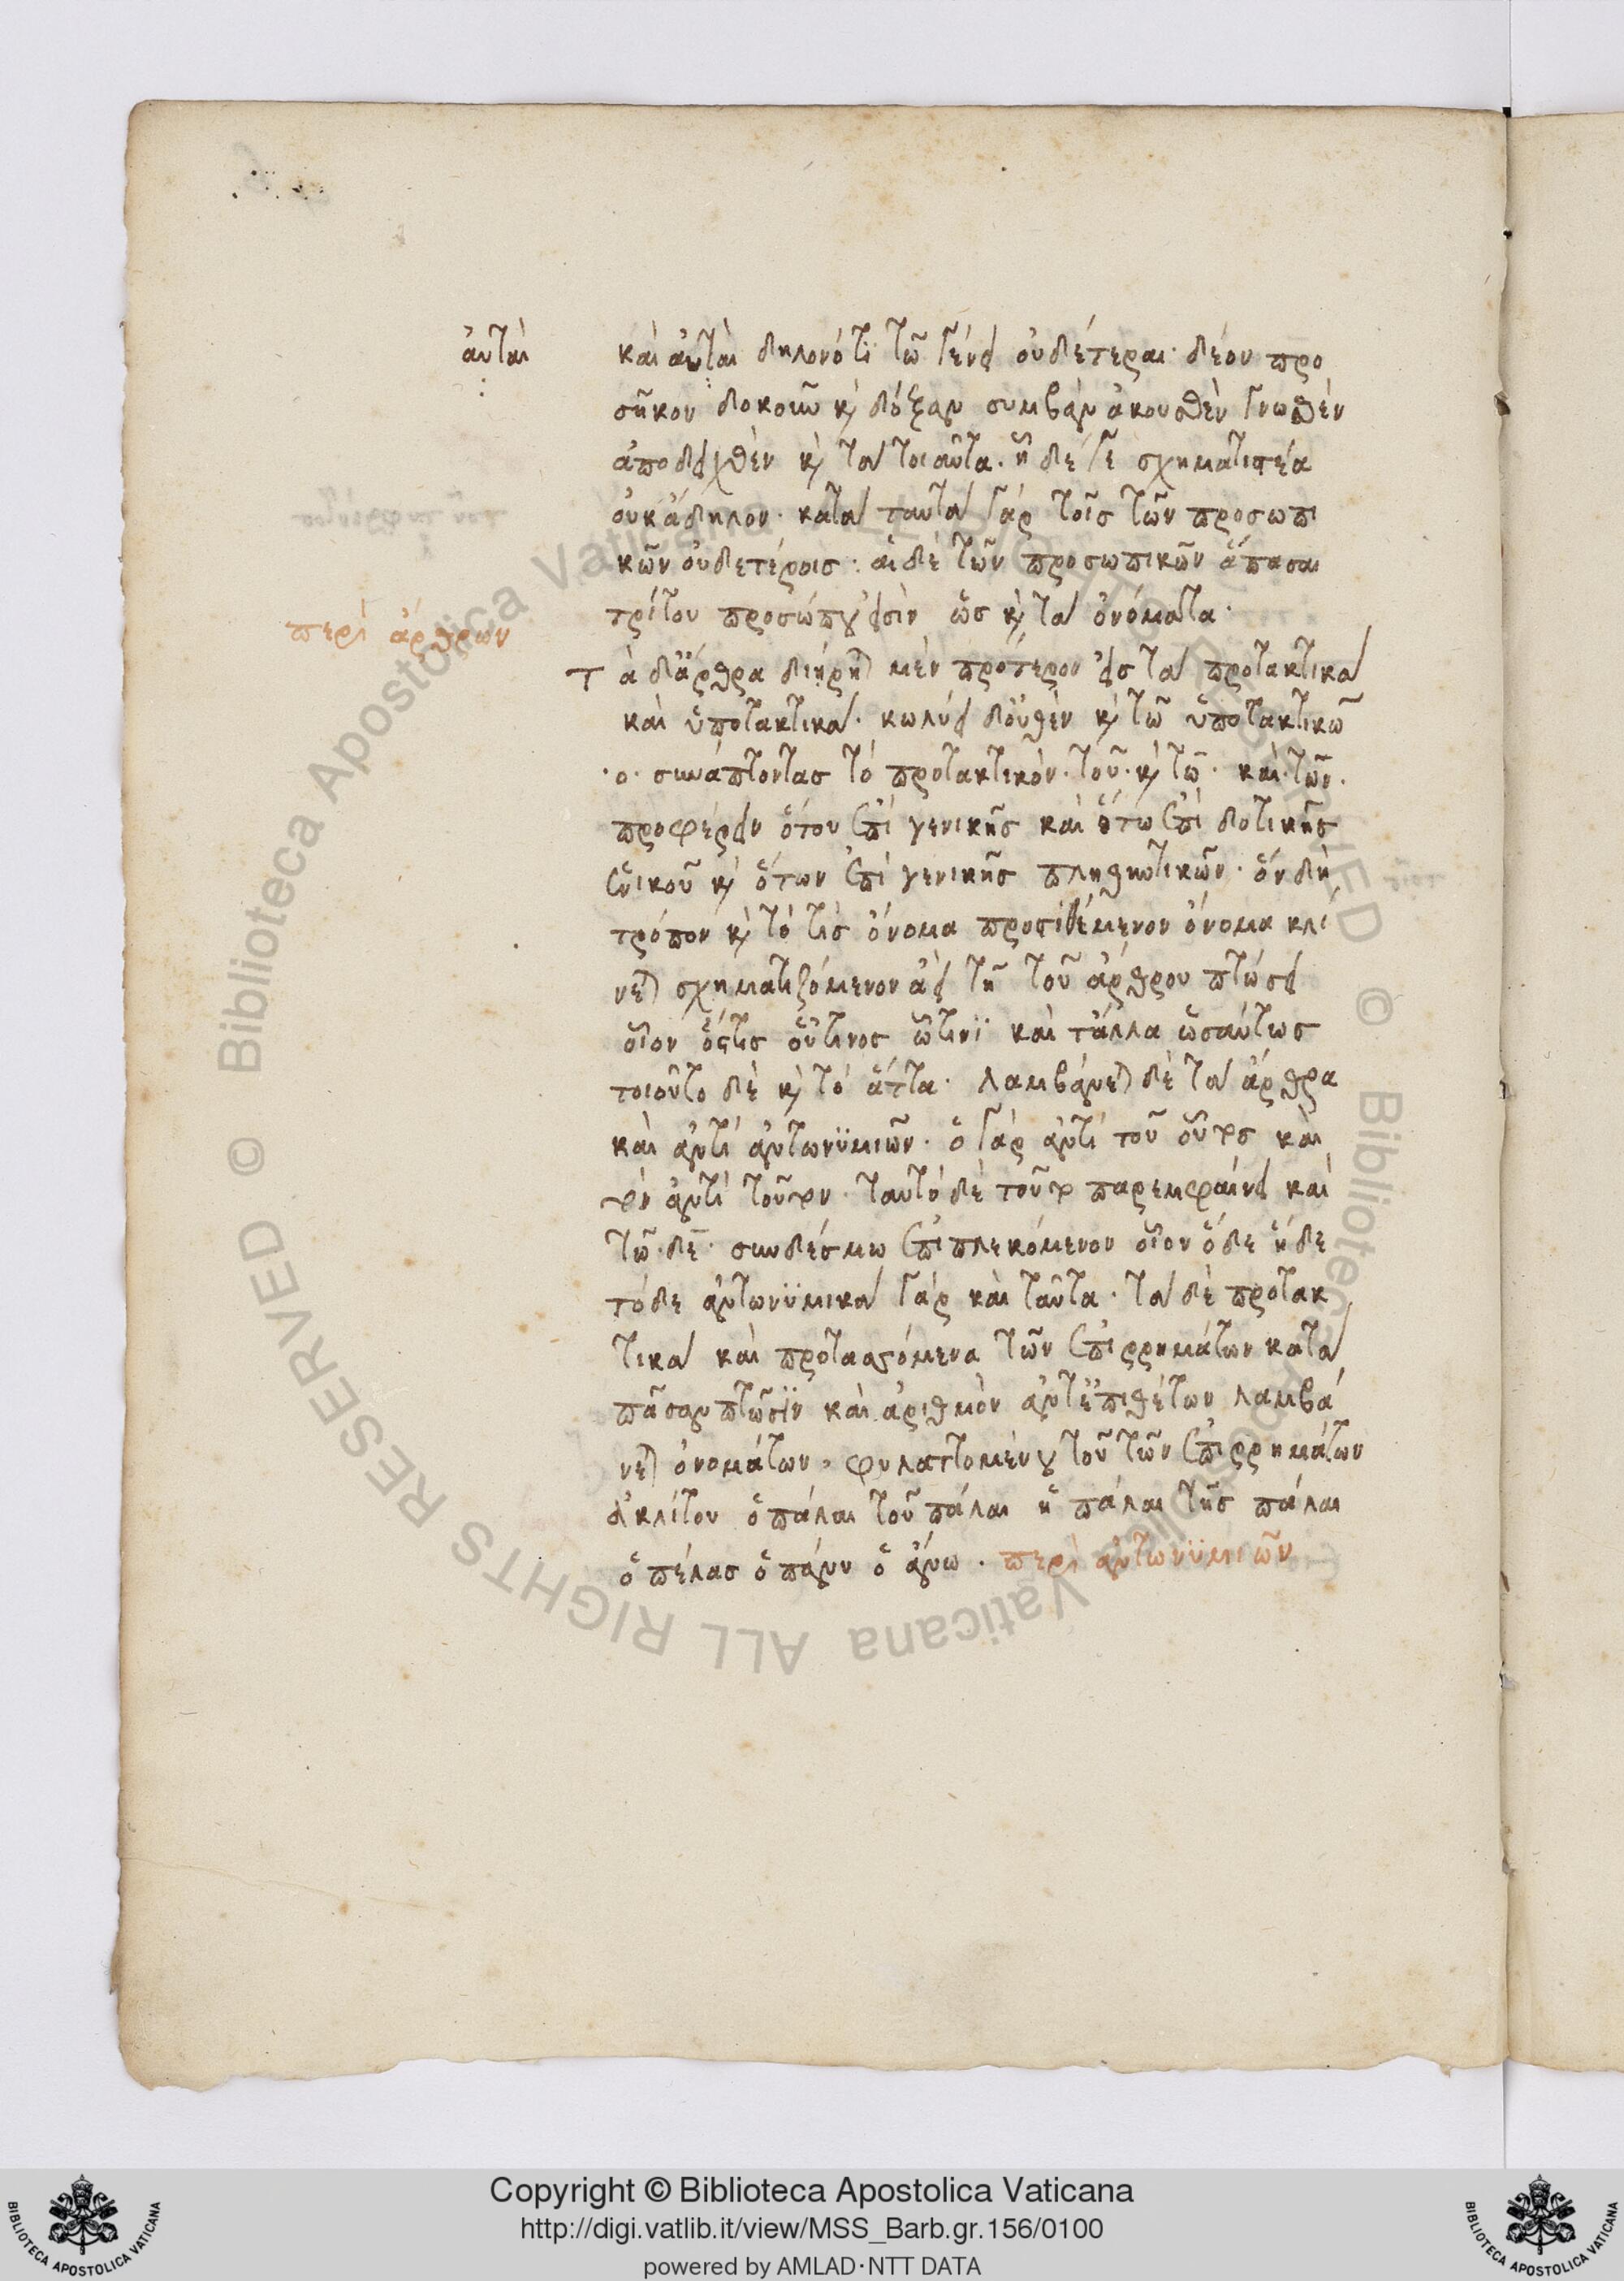 αὐταὶ
καὶ αὐταὶ δηλονότι τῶ γένει οὐδέτεραι· δέον προ
σῆκον δοκοῦν κỳ δόξαν συμβὰν ἀκουσθὲν γνωσθὲν
ἀποδειχθὲν κỳ τὰ τοιαῦτα. ἥ δέ γε σχηματιστέα
οὐκ ἄδηλον· κατὰ ταυτὰ γάρ τοῖς τῶν προσωπι
κῶν οὐδετέροις: αἱ δὲ τῶν προσωπικῶν ἅπασαι
τρίτου προσώπου εἰσὶν ὥς κỳ τὰ ὀνόματα·
περὶ ἄρθρων
Τὰ δἄρθρα διήρηται μὲν πρότερον εἰς τὰ προτακτικὰ
καὶ ὑποτακτικά. κωλύει δοὐθὲν κỳ τῶ ὑποτακτικῶ
·ο· συνάπτοντας τὸ προτακτικὸν· τοῦ· κỳ τῶ· καὶ· τῶν·
προφέρειν ὅτου ἐπὶ γενικῆς καὶ ὅτω ἐπὶ δοτικῆς
ἑνικοῦ κỳ ὅτων ἐπὶ γενικῆς πληθυντικῶν· ὅν δὴ
τρόπον κỳ τό τὶς ὄνομα προστιθέμενον ὄνομα κλί
νεται σχηματιζόμενον ἀεὶ τῆ τοῦ ἄρθρου πτώσει
οἷον ὅςτις οὗτινος ᾧτινϊ καὶ τἄλλα ὡσαύτως
τοιοῦτο δὲ κỳ τό ἅττα· λαμβάνεται δὲ τὰ ἄρθρα
καὶ ἀντὶ ἀντωνϋμιῶν· ὅ γάρ ἀντὶ τοῦ οὗτος καὶ
τὸν ἀντὶ τοῦτον· ταυτό δὲ τοῦτο παρεμφαίνει καὶ
τῶ·δε· συνδέσμω ἐπιπλεκόμενον οἷον ὅδε ἥδε
τόδε ἀντωνϋμικὰ γάρ καὶ ταῦτα· τὰ δὲ προτακ
τικὰ καὶ προτασσόμενα τῶν ἐπιρρημάτων κατὰ
πᾶσαν πτῶσϊν καὶ ἀριθμὸν ἀντἐπιθέτων λαμβά
νεται ὀνομάτων. φυλαττομένου τοῦ τῶν ἐπιρρημάτων
ἀκλίτου ὁ πάλαι τοῦ πάλαι ἡ πάλαι τῆς πάλαι
ὁ πέλας ὁ πάνυ ὁ ἄνω. περὶ ἀντωνϋμιῶν
Copyright © Biblioteca Apostolica Vaticana
http://digi.vatlib.it/view/MSS_Barb.gr.156/0100
powered by AMLAD·NTT DATA